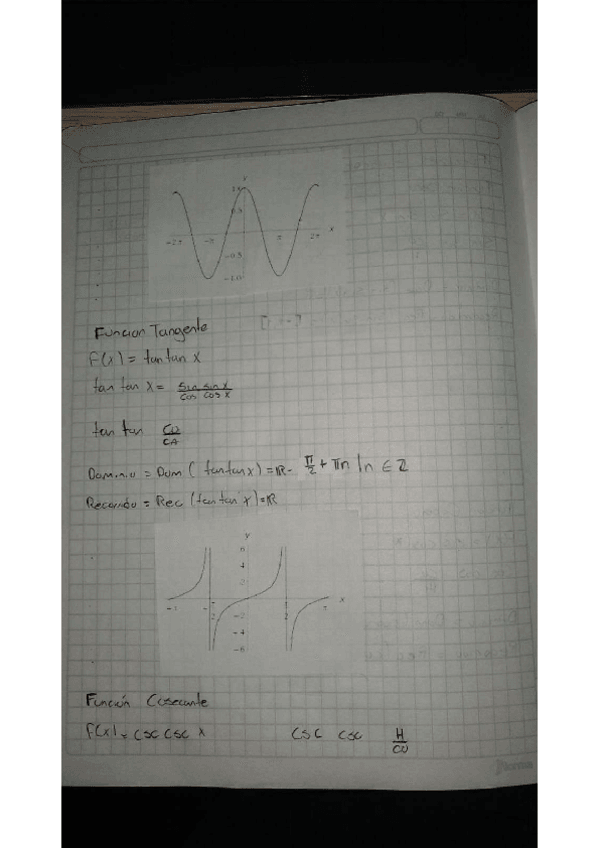 y
1.0
0.5
-2π -π π 2π x
-0.5
-1.0
Función Tangente
F(x) = tan tan x
tan tan x = sin sin x / cos cos x
tan tan CO / CA
Dominio = Dom ( tan tan x) = ℝ - π/2 + πn | n ∈ ℤ
Recorrido = Rec (tan tan x) = ℝ
y
6
4
2
π x
-2
-4
-6
Función Cosecante
F(x) = csc csc x csc csc H / CO